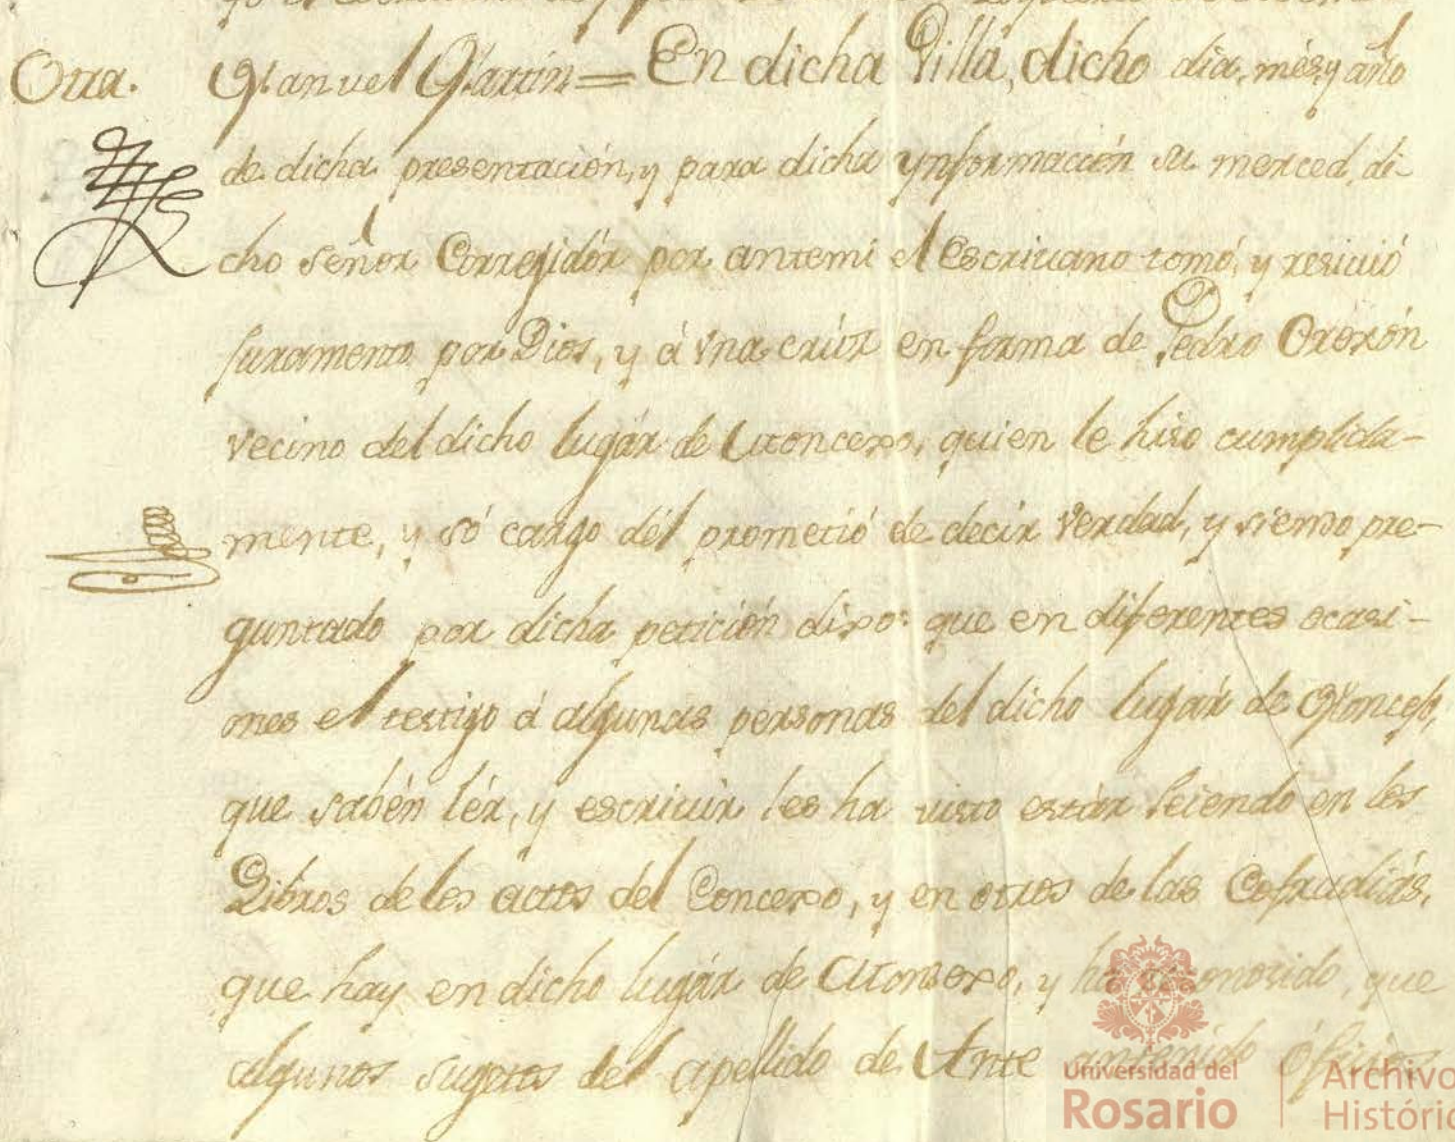 Otra. Manuel Martin = En dicha Villa, dicho dia, més, y año
de dicha presentación, y para dicha ynformación su merced, di-
cho señor Corregidór por antemi el Escriuano tomó, y resiuió
juramento por Dios, y á Vna crúz en forma de Pedro Orexón
vecino del dicho lugár de Moncexo, quien le hiso cumplida-
mente, y só cargo dél prometió de decir verdad, y siendo pre-
guntado por dicha petición dixo: que en diferentes ocasi-
ones el testigo á algunas personas del dicho lugár de Moncejo,
que sabén lér, y escriuir les ha visto estár leiendo en los
Libros de los actos del Concexo, y en otros de las Cofradiás,
que hay en dicho lugár de Monsexo, y ha conosido, que
algunos sugetos del apellido de Ante an tenido óficios
Universidad del
Rosario
Archivo
Históric